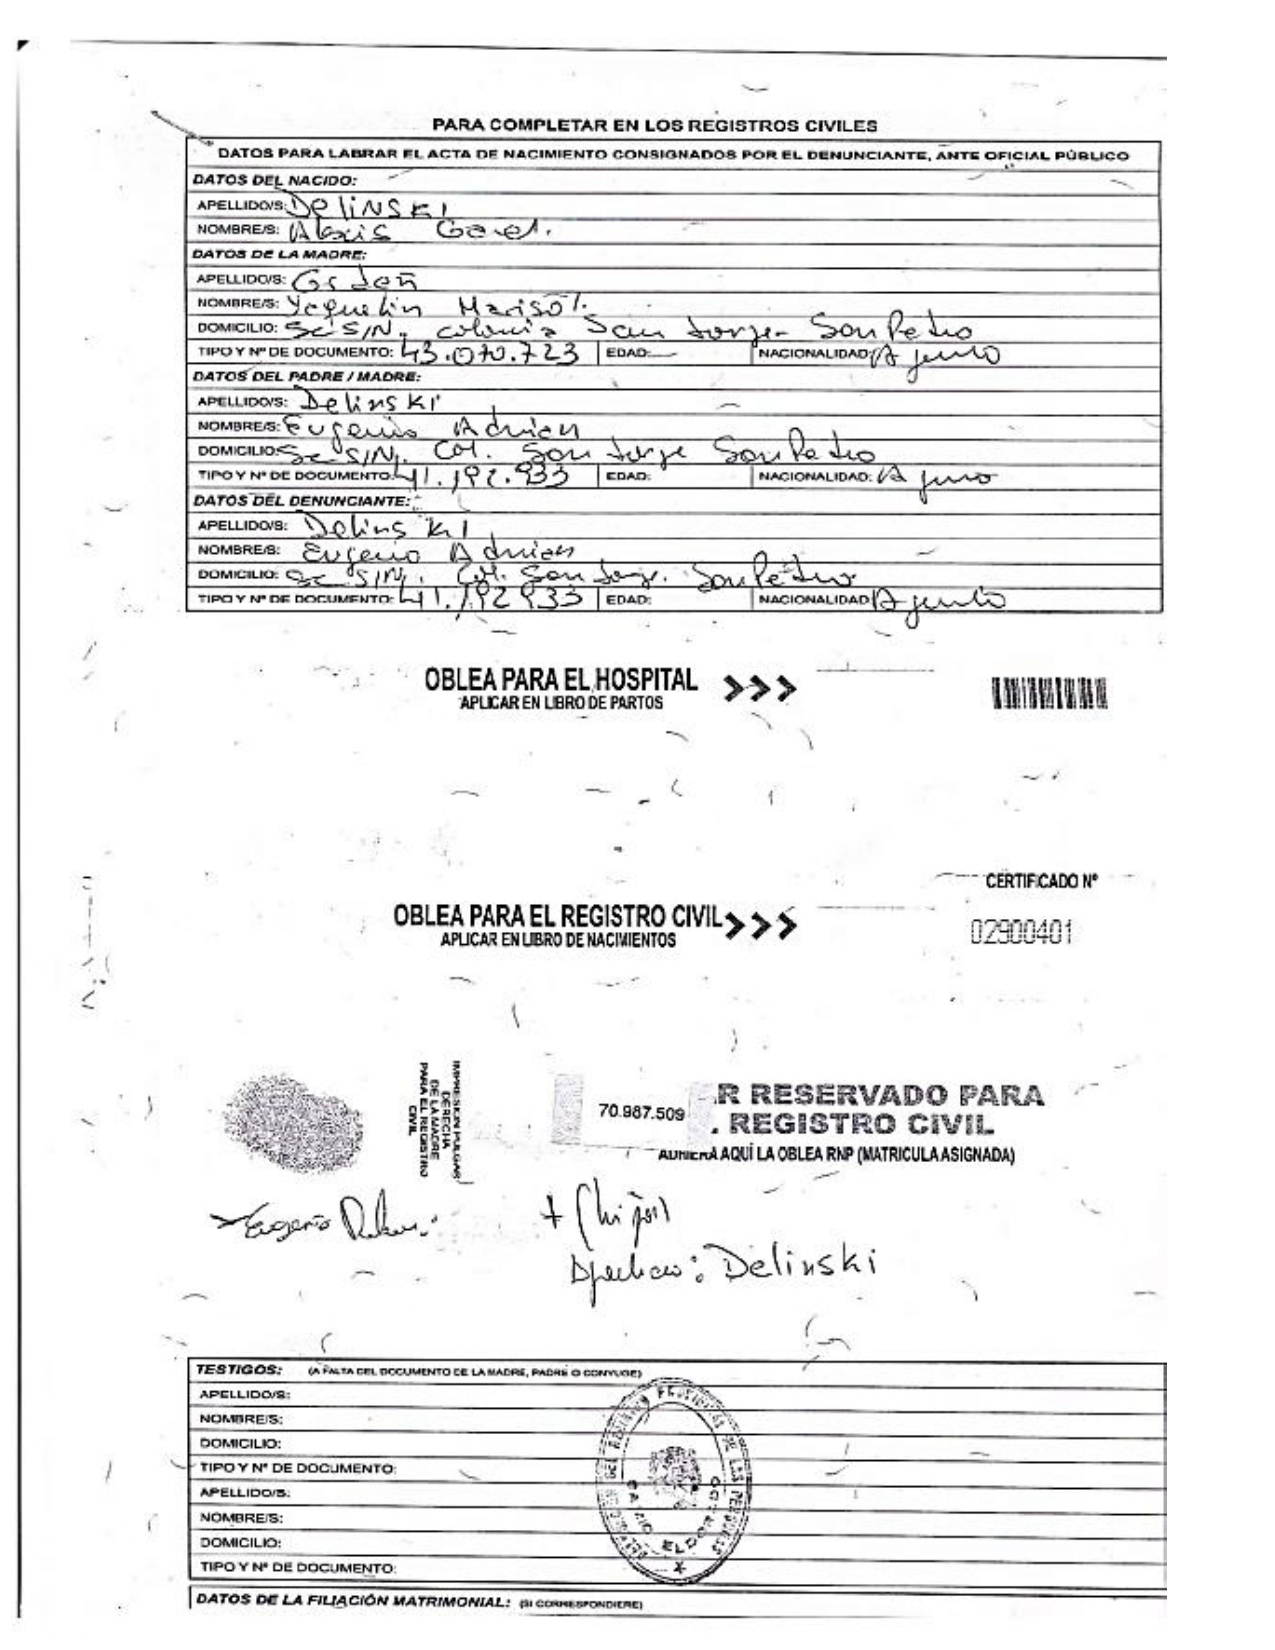 PARA COMPLETAR EN LOS REGISTROS CIVILES
DATOS PARA LABRAR EL ACTA DE NACIMIENTO CONSIGNADOS POR EL DENUNCIANTE, ANTE OFICIAL PÚBLICO
DATOS DEL NACIDO:
APELLIDO/S: DeliNSKI
NOMBRE/S: Alexis
DATOS DE LA MADRE:
APELLIDO/S:
NOMBRE/S: Yaquelin Marisol.
DOMICILIO: Sc S/N. colonia San Jorge - San Pedro
TIPO Y Nº DE DOCUMENTO: 43.070.723 EDAD: NACIONALIDAD:
DATOS DEL PADRE / MADRE:
APELLIDO/S: DelinsKi
NOMBRE/S: Eugenio Adrian
DOMICILIO: Sc S/N. Col. San Jorge San Pedro
TIPO Y Nº DE DOCUMENTO: 41.192.933 EDAD: NACIONALIDAD:
DATOS DEL DENUNCIANTE:
APELLIDO/S: DelinsKi
NOMBRE/S: Eugenio Adrian
DOMICILIO: Sc S/N. Col. San Jorge. San Pedro
TIPO Y Nº DE DOCUMENTO: 41.192.933 EDAD: NACIONALIDAD:
OBLEA PARA EL HOSPITAL >>>
APLICAR EN LIBRO DE PARTOS
CERTIFICADO Nº
OBLEA PARA EL REGISTRO CIVIL >>>
APLICAR EN LIBRO DE NACIMIENTOS
02900401
IMPRESION PULGAR
DERECHA
DE LA MADRE
PARA EL REGISTRO
CIVIL
70.987.509
R RESERVADO PARA
. REGISTRO CIVIL
ADHIERA AQUÍ LA OBLEA RNP (MATRICULA ASIGNADA)
Eugenio
Delinski
TESTIGOS: (A FALTA DEL DOCUMENTO DE LA MADRE, PADRE O CONYUGE)
APELLIDO/S:
NOMBRE/S:
DOMICILIO:
TIPO Y Nº DE DOCUMENTO:
APELLIDO/S:
NOMBRE/S:
DOMICILIO:
TIPO Y Nº DE DOCUMENTO:
DATOS DE LA FILIACIÓN MATRIMONIAL: (SI CORRESPONDIERE)